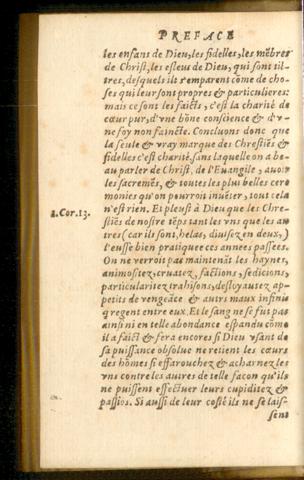 PREFACE
les enfans de Dieu, les fidelles, les mẽbres
de Christ, les esleus de Dieu, qui sont til-
tres, desquels ilz s'emparent cõme de cho-
ses qui leur sont propres & particulieres:
mais ce sont les faicts, c'est la charité de
cœur pur, d'vne bõne conscience & d'v-
ne foy non faincte. Concluons donc que
la seule & vray marque des Chrestiẽs &
fidelles c'est charité, sans laquelle on a be-
au parler de Christ, de l'Euangile, auoir
les sacremẽs, & toutes les plus belles cere
monies qu'on pourroit inuẽter, tout cela
1.Cor.13. n'est rien. Et pleust à Dieu que les Chre-
stiẽs de nostre tẽps tant les vns que les au
tres (car ils sont, helas, diuisez en deux,)
l'eusse bien pratiquee ces annees passees.
On ne verroit pas maintenãt les haynes,
animositez, cruatez, factions, sedicions,
particularitez trahisons, desloyautez ap-
petits de vengeãce & autrs maux infinis
q̃ regent entre eux. Et le sang ne se fut pas
ainsi ni en telle abondance espandu cõme
il a faict & fera encores si Dieu vsant de
sa puissance obsolue ne retient les cœurs
des hõmes si effarouchez & acharnez les
vns contre les autres de telle facon qu'ils
ne puissent effectuer leurs cupiditez &
passiõs. Si aussi de leur costé ils ne se lais-
sent